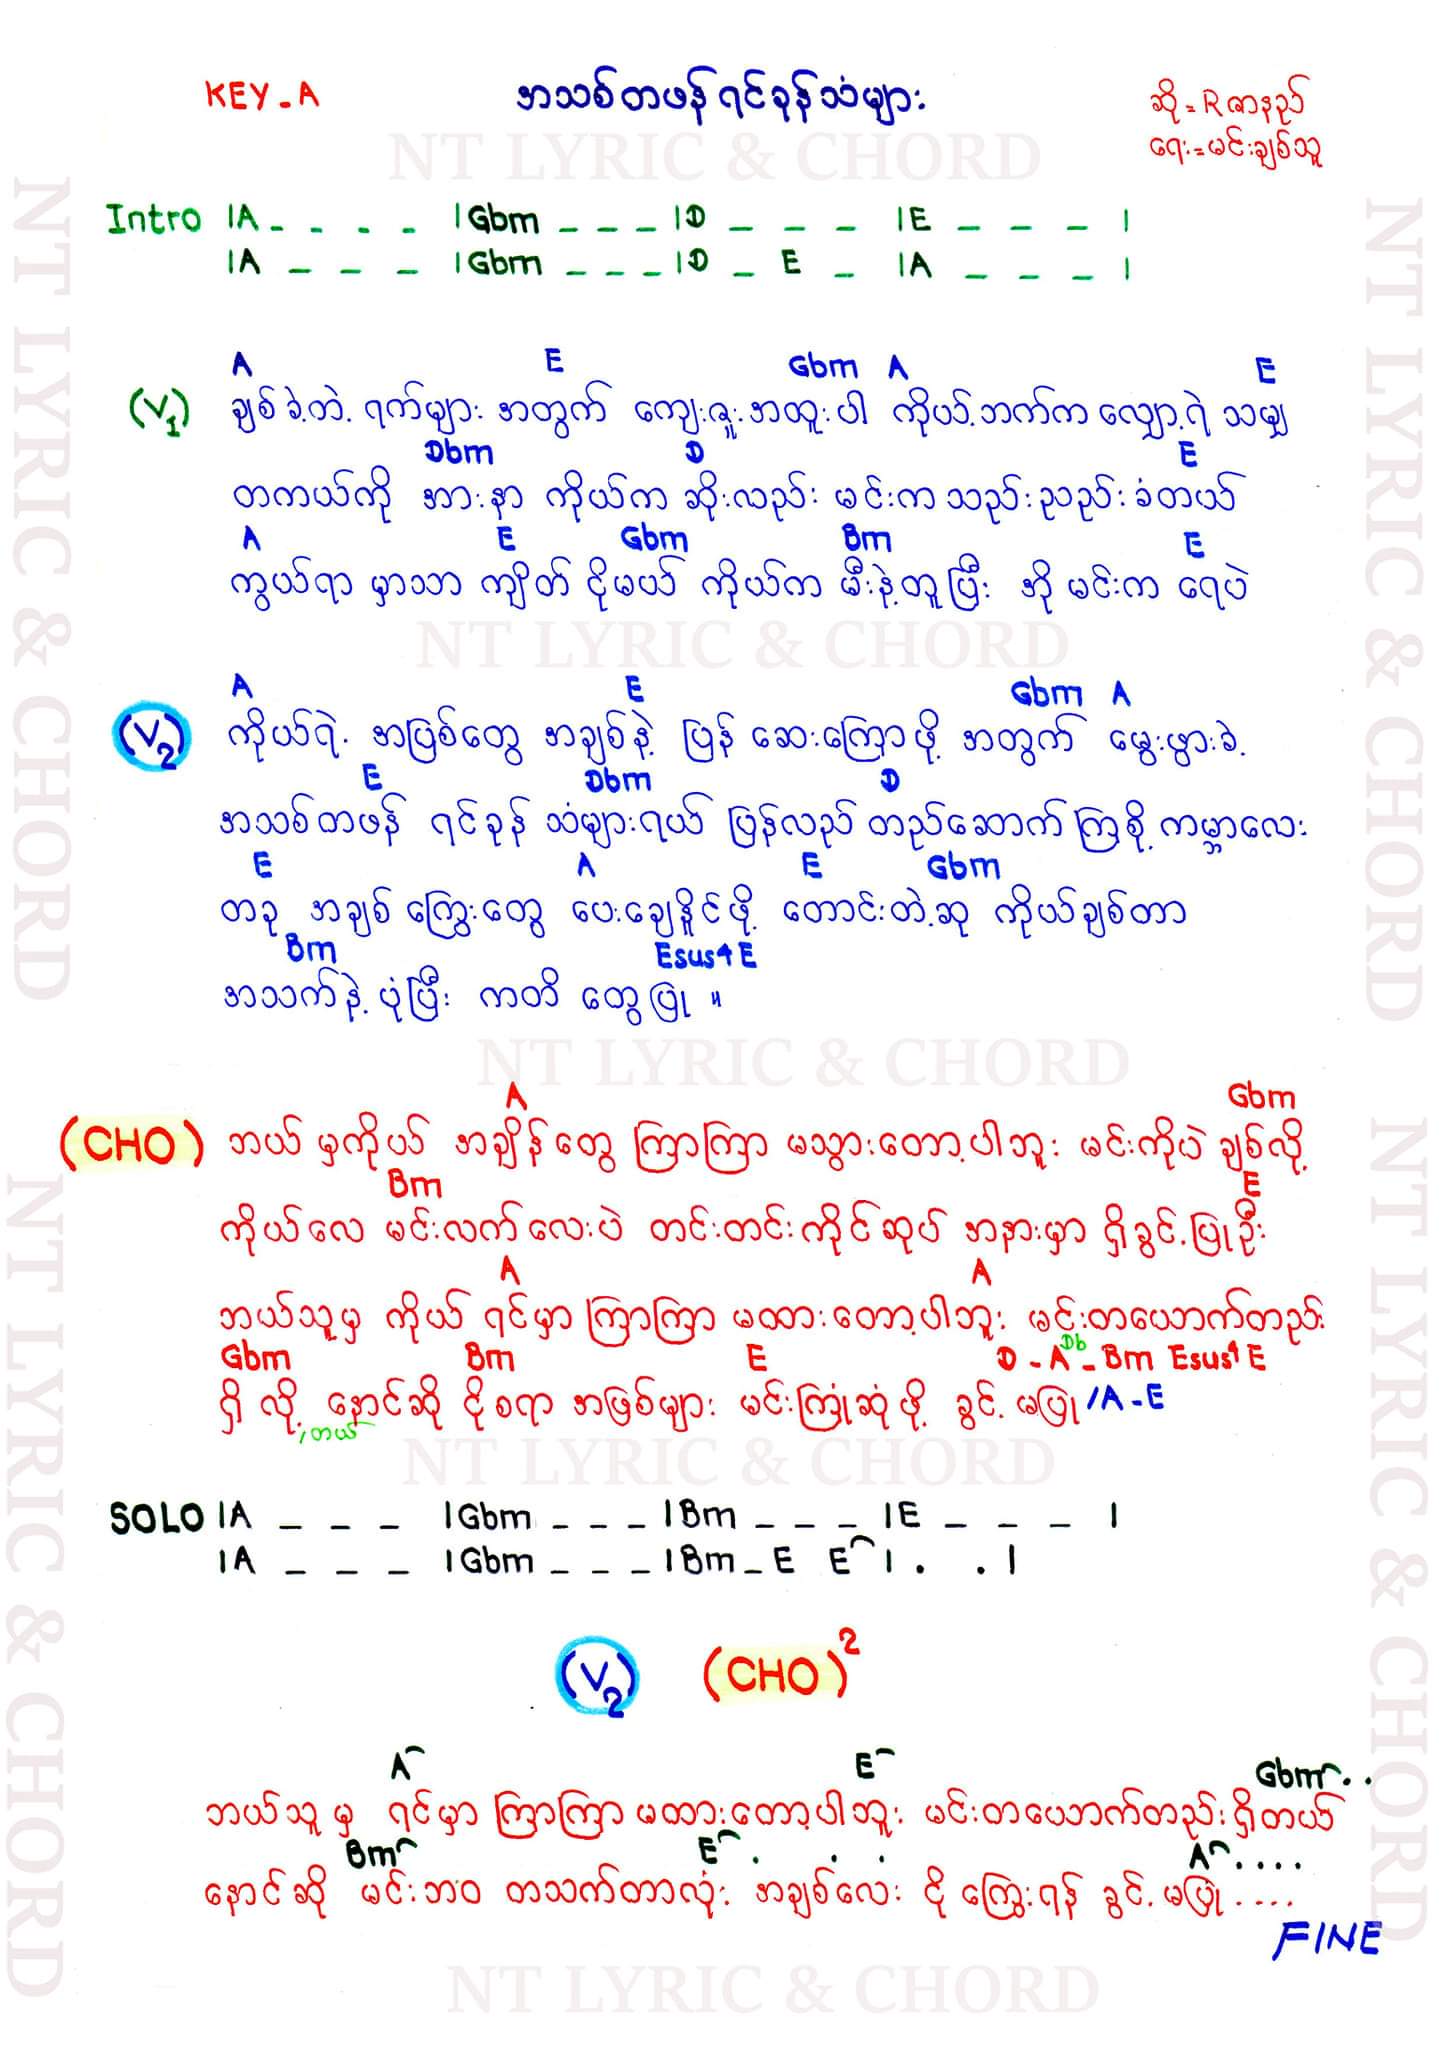 KEY - A
အသစ်တဖန် ရင်ခုန်သံများ
ဆို = R ဇာနည်
ရေး = မင်းချစ်သူ
NT LYRIC & CHORD
Intro |A - - - - |Gbm - - - |D - - - |E - - - |
|A - - - |Gbm - - - |D - E - |A - - - |
A E Gbm A E
(V1) ချစ်ခဲ့တဲ့ ရက်များ အတွက် ကျေးဇူးအထူးပါ ကိုယ့်ဘက်က လျှော့ရဲ သမျှ
Dbm D E
တကယ်ကို အားနာ ကိုယ်က ဆိုးလည်း မင်းက သည်းညည်းခံတယ်
A E Gbm Bm E
ကွယ်ရာ မှာသာ ကျိတ် ငိုမယ် ကိုယ်က မီးနဲ့တူပြီး အို မင်းက ရေပဲ
NT LYRIC & CHORD
A E Gbm A
(V2) ကိုယ်ရဲ့ အပြစ်တွေ အချစ်နဲ့ ပြန် ဆေးကြောဖို့ အတွက် မွေးဖွားခဲ့
E Dbm D
အသစ်တဖန် ရင်ခုန် သံများရယ် ပြန်လည် တည်ဆောက် ကြစို့ ကမ္ဘာလေး
E A E Gbm
တခု အချစ် ကြွေးတွေ ပေးချေနိုင်ဖို့ တောင်းတဲ့ဆု ကိုယ်ချစ်တာ
Bm Esus4 E
အသက်နဲ့ ပုံပြီး ကတိ တွေပြု ။
NT LYRIC & CHORD
A Gbm
(CHO) ဘယ် မှကိုယ် အချိန်တွေ ကြာကြာ မသွားတော့ပါဘူး မင်းကိုပဲ ချစ်လို့
Bm E
ကိုယ်လေ မင်းလက်လေးပဲ တင်းတင်းကိုင်ဆုပ် အနားမှာ ရှိခွင့်ပြုဦး
A A
ဘယ်သူ့မှ ကိုယ် ရင်မှာ ကြာကြာ မထားတော့ပါဘူး မင်းတယောက်တည်း
Gbm Bm E D - A Db - Bm Esus4 E
ရှိ လို့ နောင်ဆို ငိုစရာ အဖြစ်များ မင်းကြုံဆုံဖို့ ခွင့် မပြု /A - E
/တယ်
NT LYRIC & CHORD
SOLO |A - - - |Gbm - - - |Bm - - - |E - - - |
|A - - - |Gbm - - - |Bm - E E | . . |
(V2) (CHO)2
A E Gbm . .
ဘယ်သူ မှ ရင်မှာ ကြာကြာ မထားတော့ပါဘူး မင်းတယောက်တည်းရှိတယ်
Bm E . . . A . . . .
နောင်ဆို မင်းဘဝ တသက်တာလုံး အချစ်လေး ငို ကြွေးရန် ခွင့် မပြု ....
FINE
NT LYRIC & CHORD
NT LYRIC & CHORD
NT LYRIC & CHORD
NT LYRIC & CHORD
NT LYRIC & CHORD